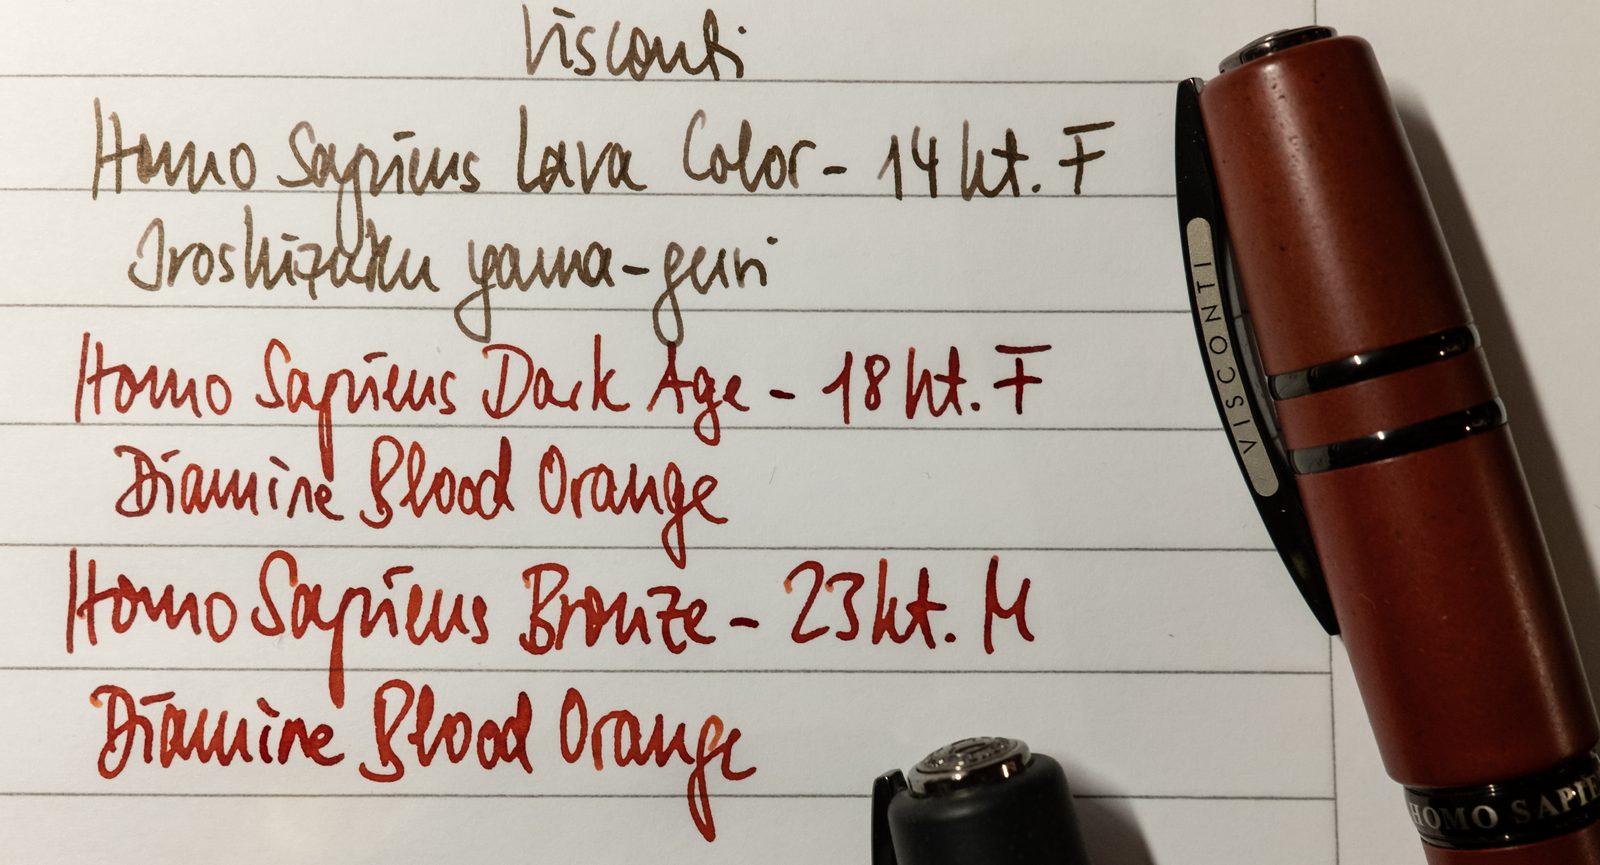 Visconti
Homo Sapiens Lava Color - 14 kt. F
Iroshizuku yama-guri
Homo Sapiens Dark Age - 18 kt. F
Diamine Blood Orange
Homo Sapiens Bronze - 23 kt. M
Diamine Blood Orange
VISCONTI
HOMO SAPIE